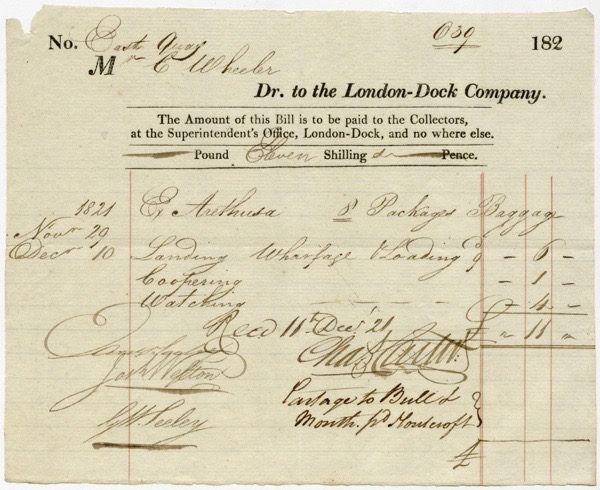 No. East Quay 639 182
Mr C Wheeler
Dr. to the London-Dock Company.
The Amount of this Bill is to be paid to the Collectors,
at the Superintendent's Office, London-Dock, and no where else.
Pound Eleven Shilling Pence.
1821 Ex Arethusa 8 Packages Baggage
Novr 29
Decr 10 Landing Wharfage & Loading - 6 -
Coopering - 1 -
Watching - 4 -
Recd 11th Decr 21 £ " 11 "
Jos Welton
Cartage to Bull &
G W Seeley Month. pd
£